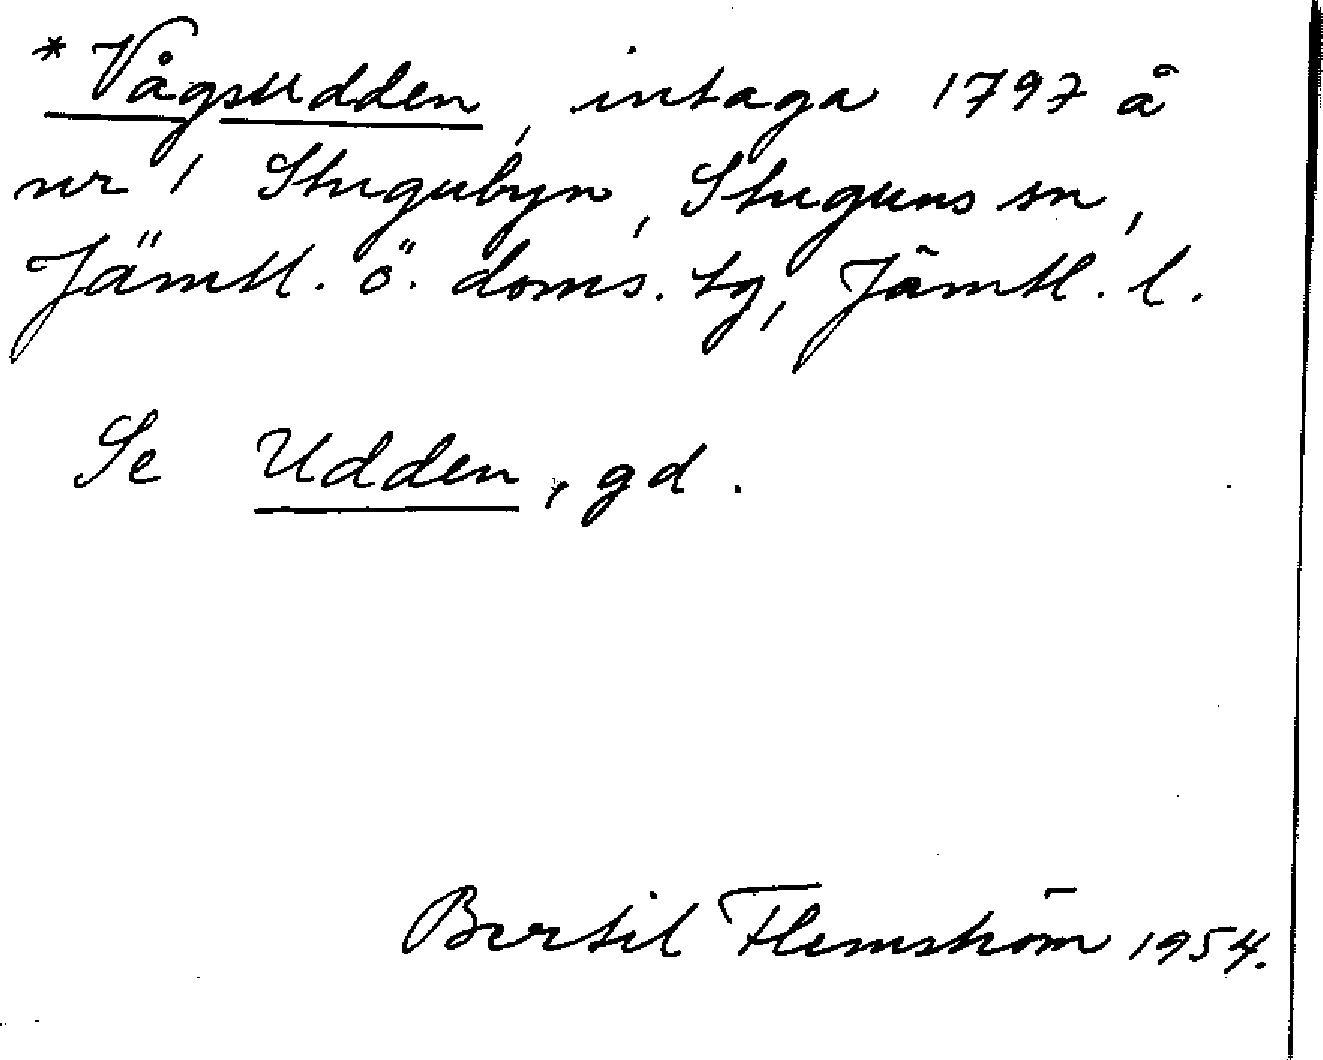 * Vågsudden, intaga 1797 å
nr 1 Stugubyn, Stuguns sn,
Jämtl. ö. doms. tg, Jämtl. l.
Se Udden, gd.
Bertil Flemström 1954.